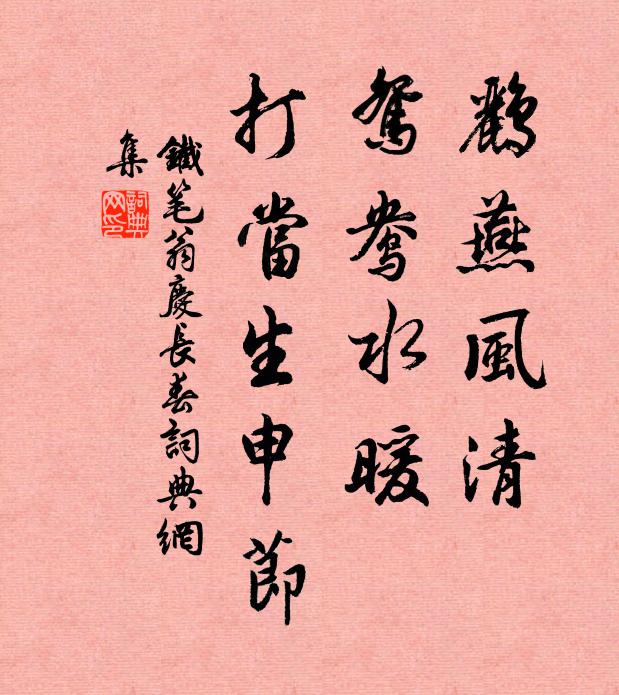 鸛燕風清
鴛鴦水暖
打當生申節
鐵笔翁慶長春詞典網
集
詞典
网印